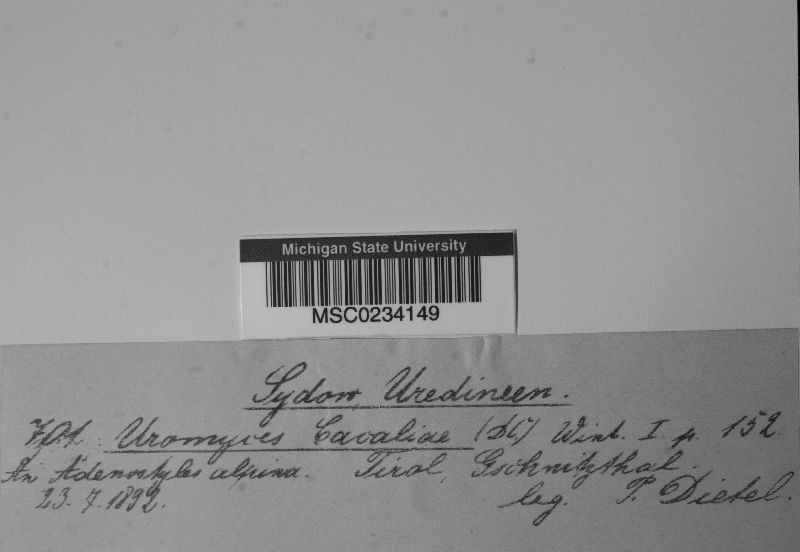 Michigan State University
MSC0234149
Sydow, Uredineen.
701. Uromyces Cacaliae (DC) Wint. I p. 152
An Adenostyles alpina. Tirol, Gschnitzthal.
23. 7. 1892. leg. P. Dietel.